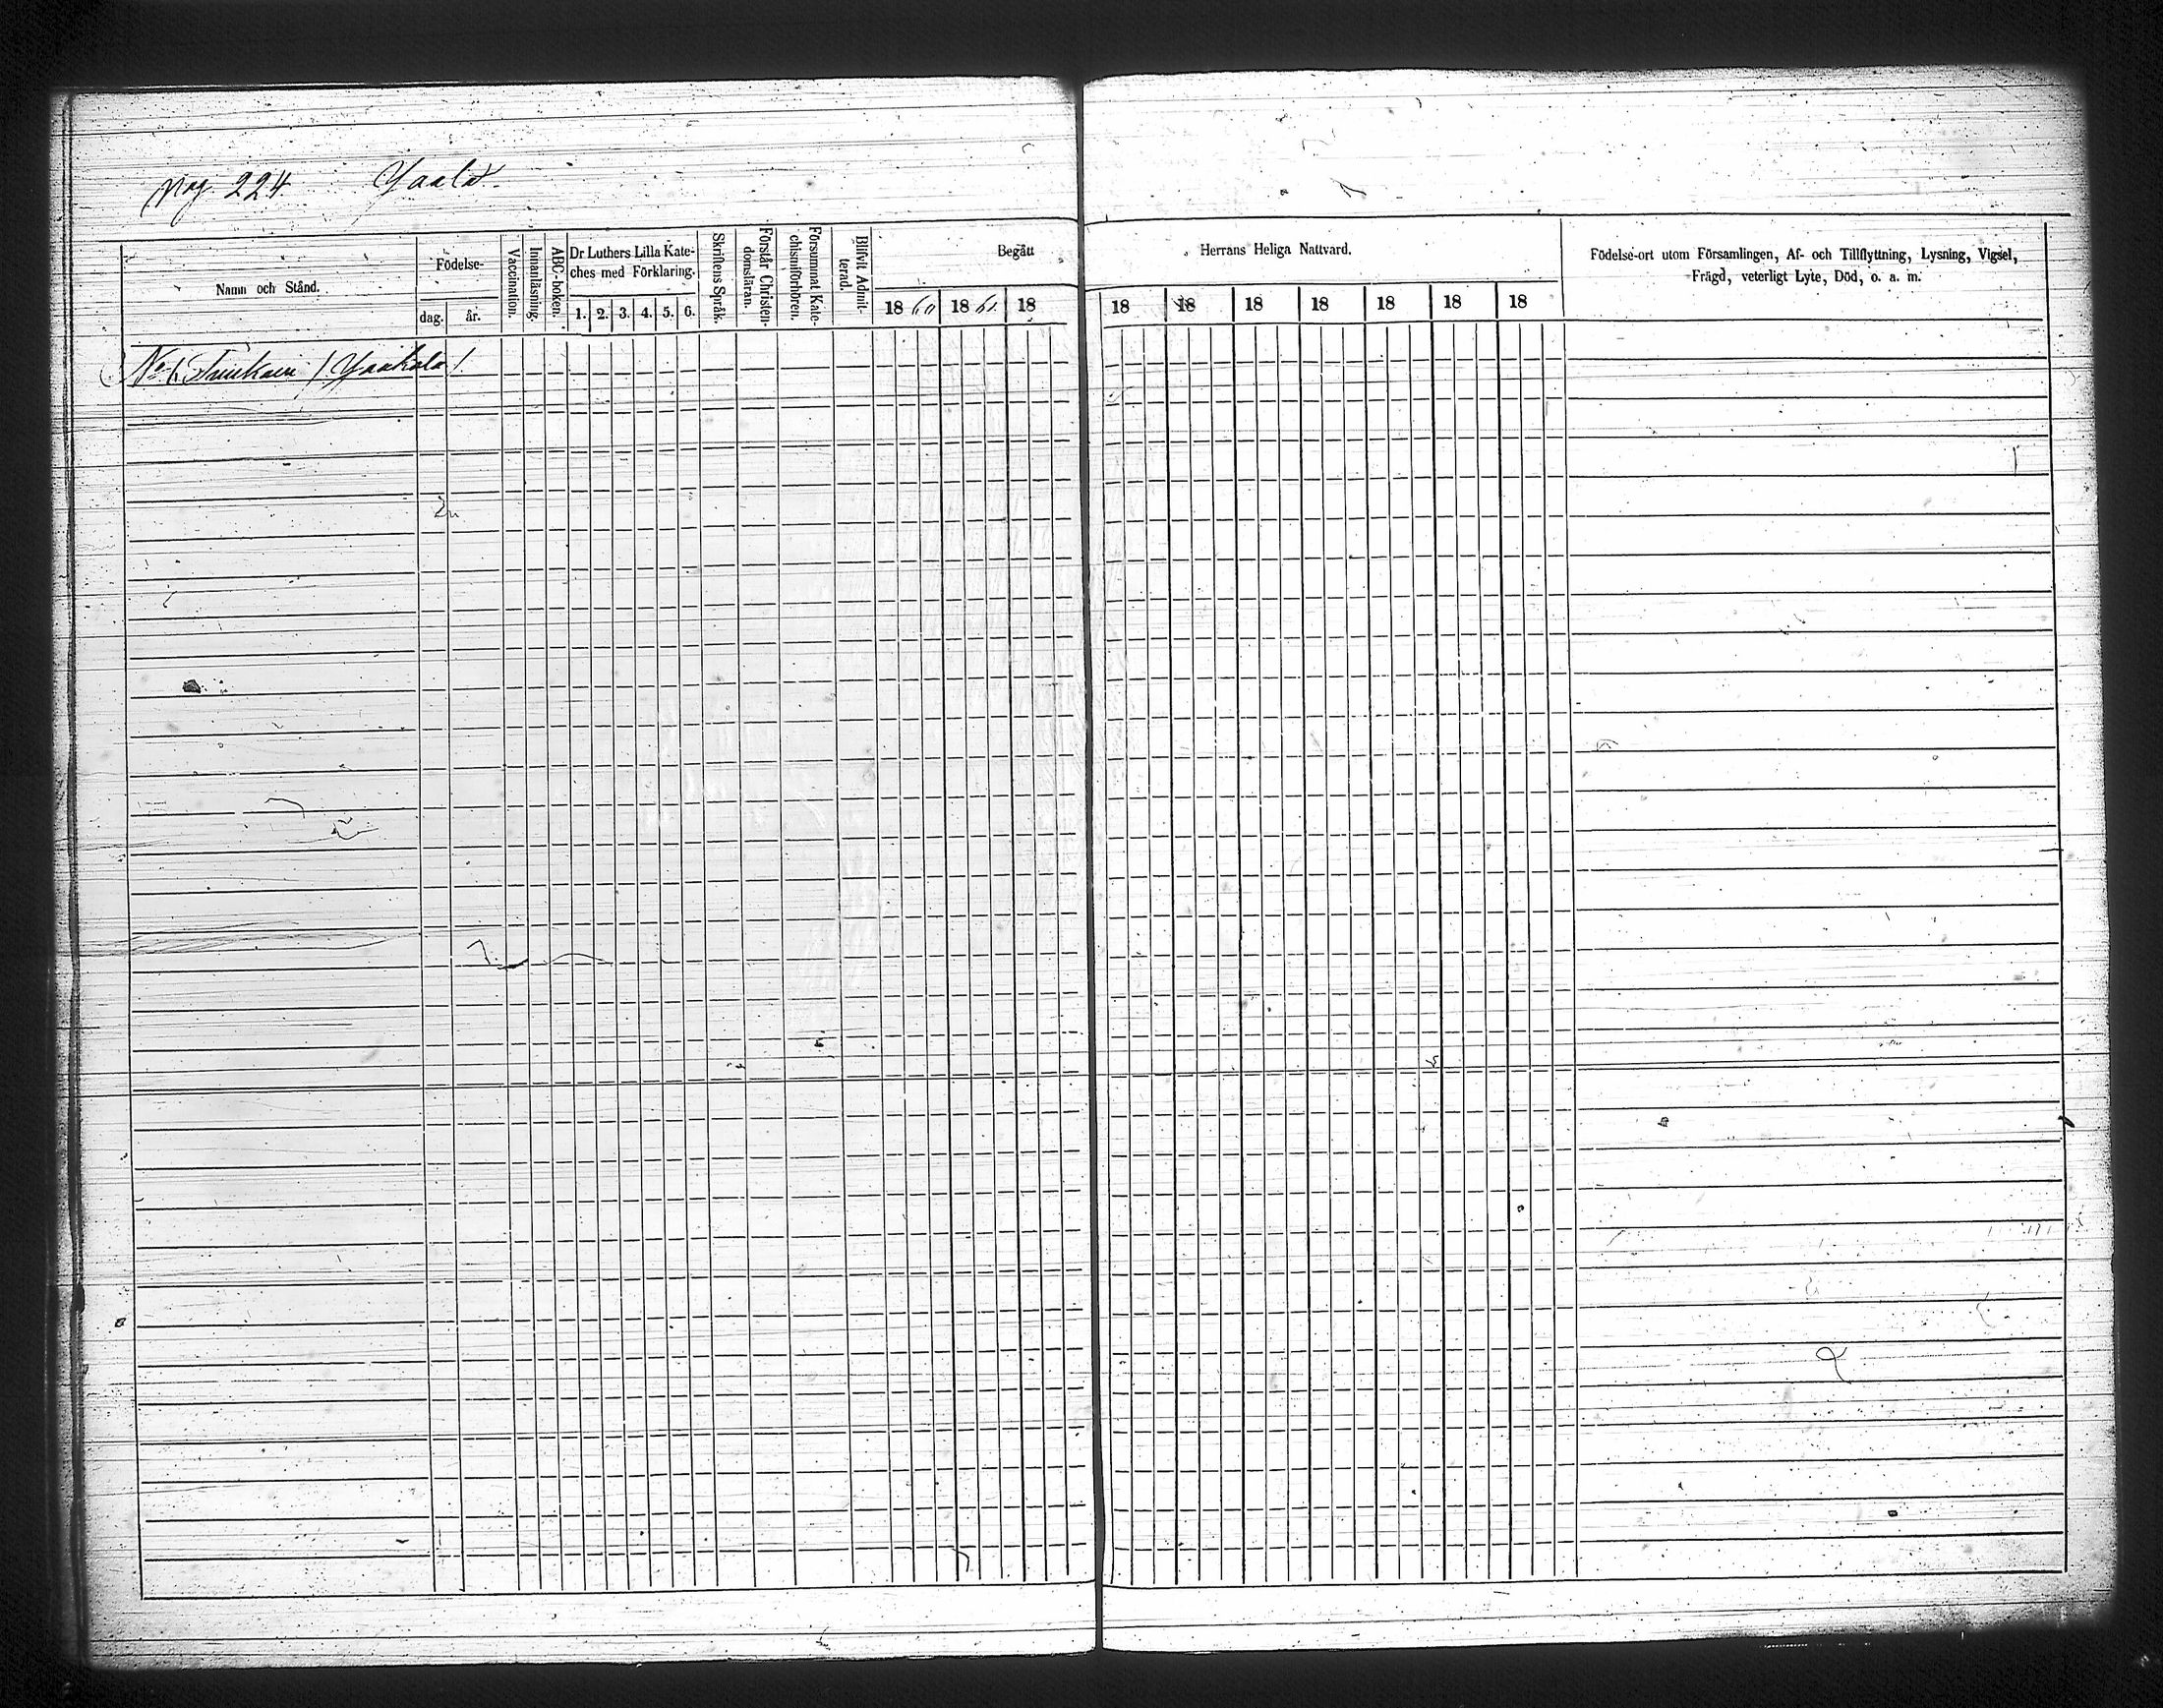 pag. 224 Yaala.
Namn och Stånd.
Födelse-
dag. år.
Vaccination.
Innanläsning.
ABC-boken.
Dr Luthers Lilla Kate-
ches med Förklaring.
1. 2. 3. 4. 5. 6.
Skriftens Språk.
Förstår Christen-
domsläran.
Försummat Kate-
chismiförhören.
Blifvit Admit-
terad.
Begått Herrans Heliga Nattvard.
18 60 18 61. 18 18 18 18 18 18 18 18
Födelse-ort utom Församlingen, Af- och Tillflyttning, Lysning, Vigsel,
Frägd, veterligt Lyte, Död, o. a. m.
No 1.